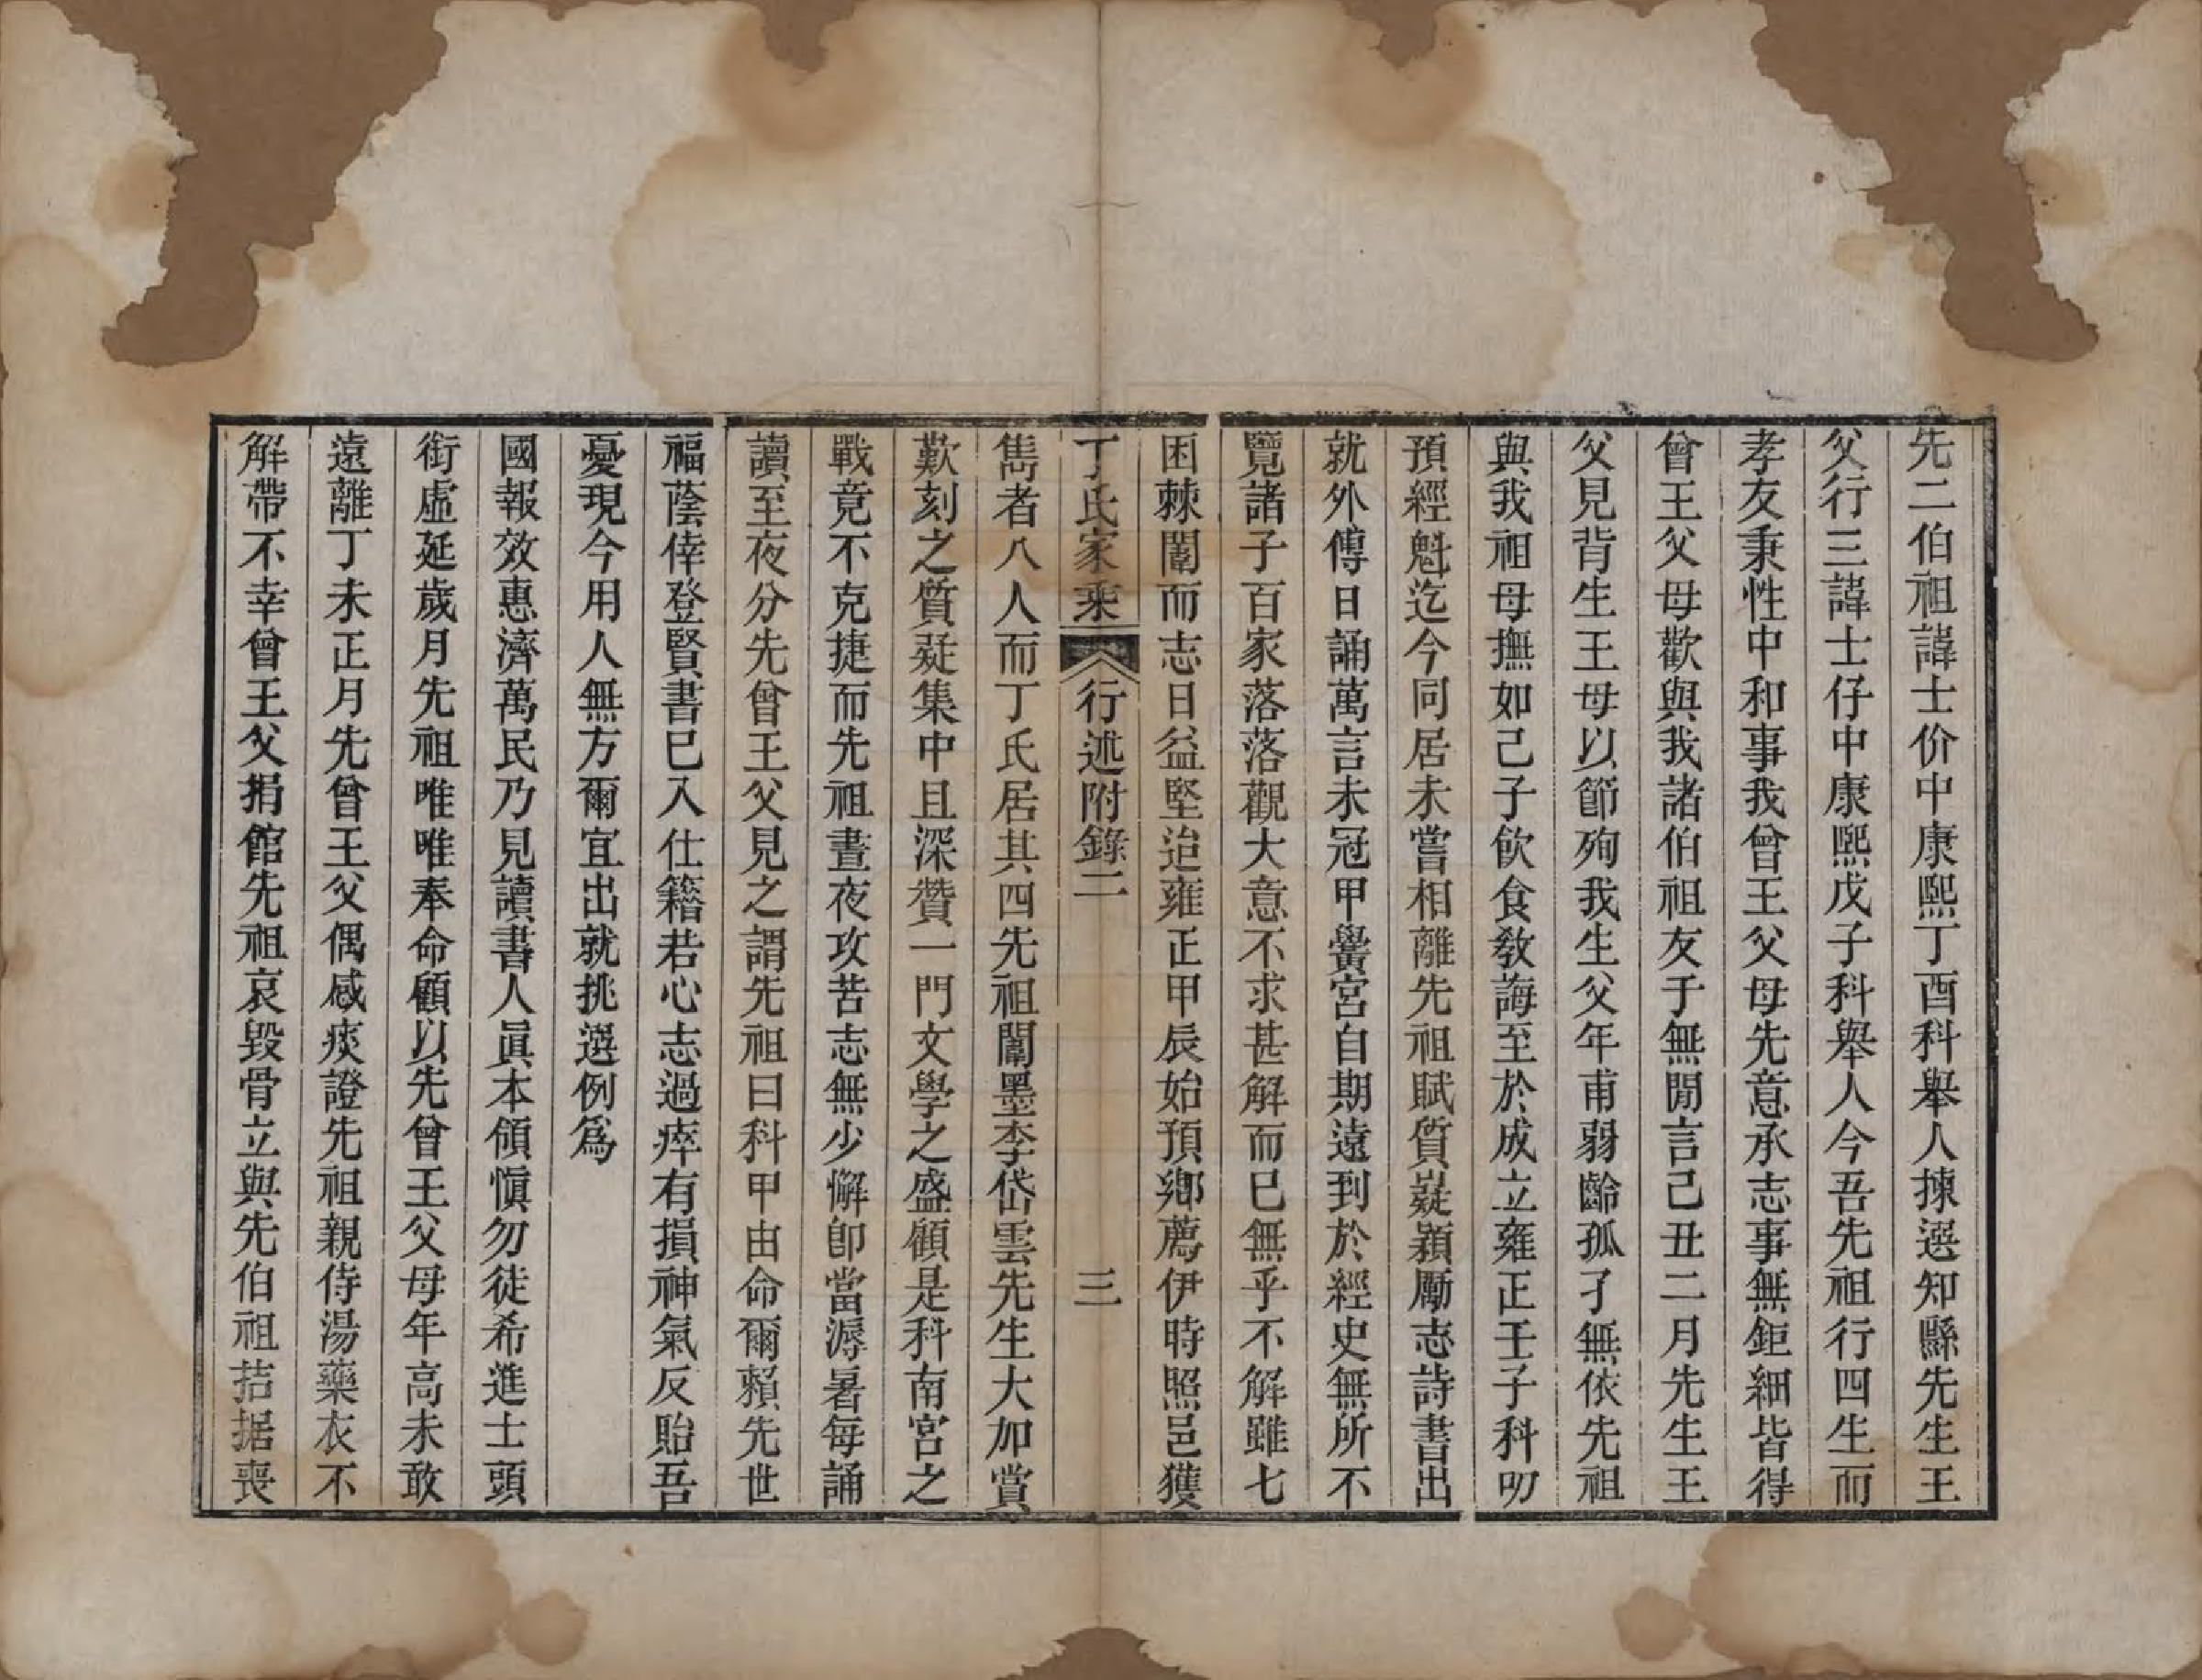 先二伯祖諱士价中康熙丁酉科舉人揀選知縣先生王
父行三諱士仔中康熙戊子科舉人今吾先祖行四生而
孝友秉性中和事我曾王父母先意承志事無鉅細皆得
曾王父母歡與我諸伯祖友于無閒言己丑二月先生王
父見背生王母以節殉我生父年甫弱齡孤孑無依先祖
與我祖母撫如己子飲食敎誨至於成立雍正壬子科叨
預經魁迄今同居未嘗相離先祖賦質嶷穎勵志詩書出
就外傅日誦萬言未冠甲黌宮自期遠到於經史無所不
覽諸子百家落落觀大意不求甚解而已無乎不解雖七
困棘闈而志日益堅迨雍正甲辰始預鄉薦伊時照邑獲
丁氏家乘 行述附錄二 三
雋者八人而丁氏居其四先祖闈墨李岱雲先生大加賞
歎刻之質疑集中且深贊一門文學之盛顧是科南宮之
戰竟不克捷而先祖晝夜攻苦志無少懈卽當溽暑每誦
讀至夜分先曾王父見之謂先祖曰科甲由命爾賴先世
福蔭倖登賢書已入仕籍若心志過瘁有損神氣反貽吾
憂現今用人無方爾宜出就挑選例爲
國報效惠濟萬民乃見讀書人眞本領愼勿徒希進士頭
銜虛延歲月先祖唯唯奉命顧以先曾王父母年高未敢
遠離丁未正月先曾王父偶感痰證先祖親侍湯藥衣不
解帶不幸曾王父捐館先祖哀毀骨立與先伯祖拮据喪